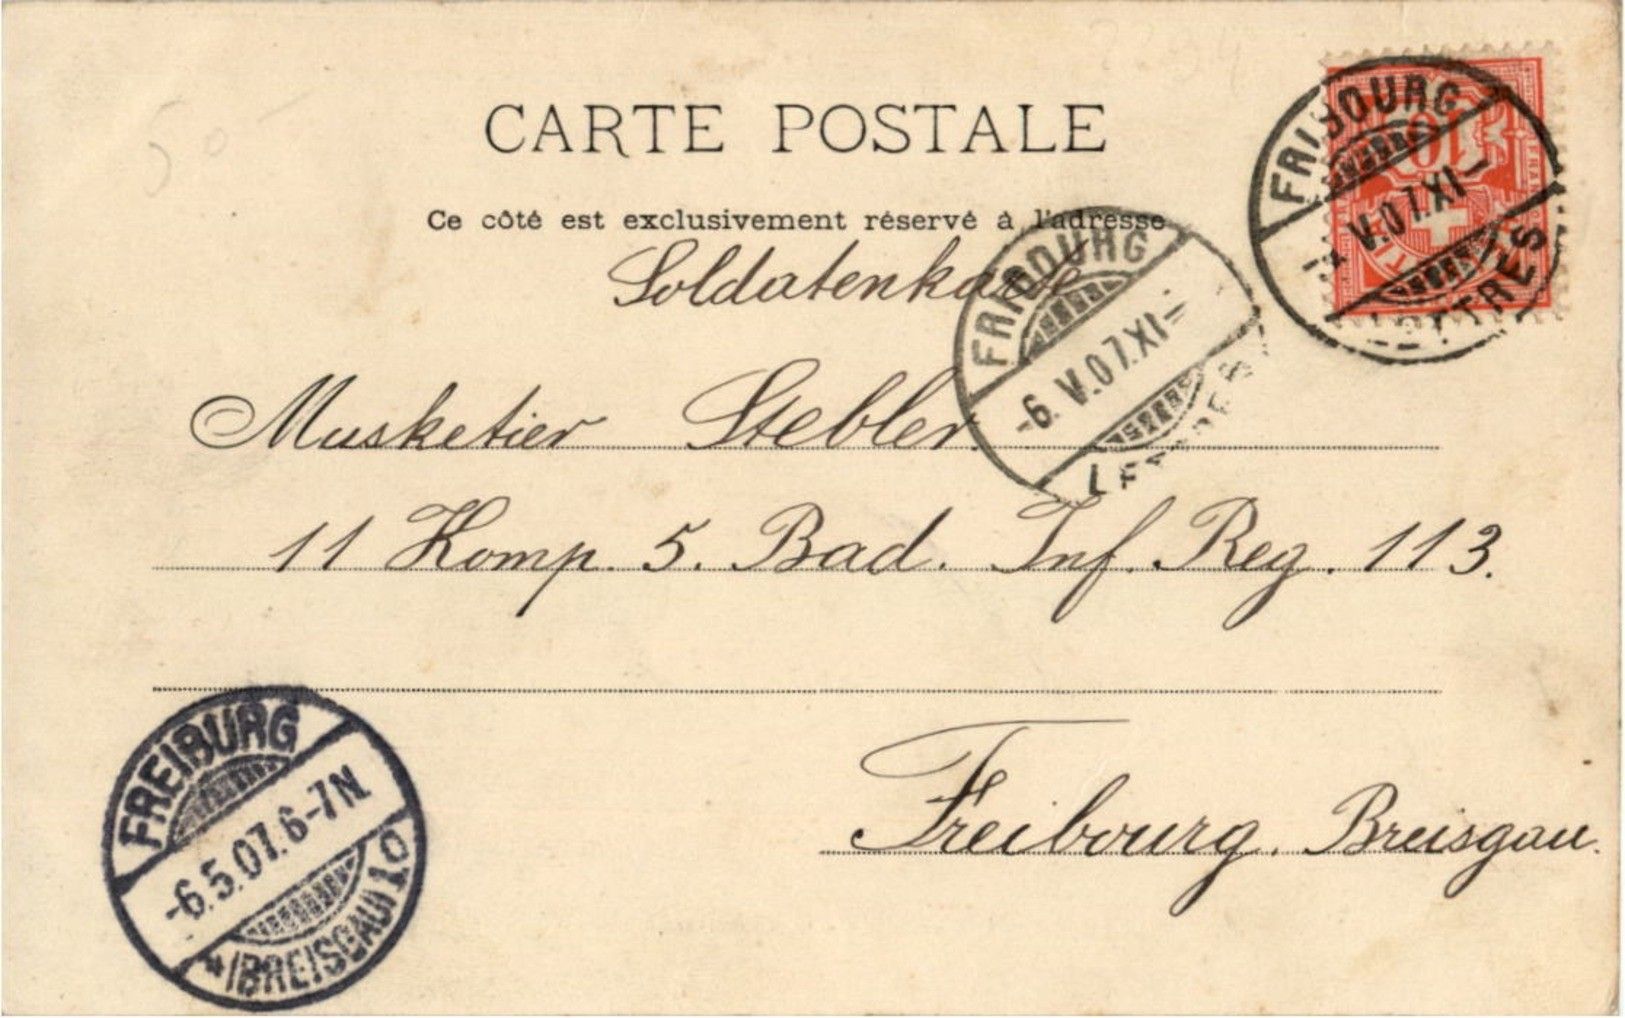 CARTE POSTALE
Ce côté est exclusivement réservé à l'adresse
Soldatenkarte
Musketier Stebler.
11 Komp. 5. Bad. Inf. Reg. 113.
Freibourg. Breisgau.
FRIBOURG
V.07.XI-
LETTRES
10
FRIBOURG
-6.V.07.XI-
FREIBURG
-6.5.07.6-7N.
*(BREISGAU)1.O
50-